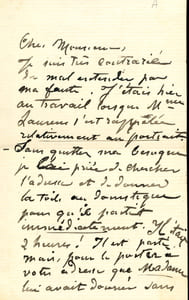 Cher Monsieur,
Je suis très contrarié
du mal entendu par
ma faute. J'étais hier
au travail lorsque Mme
Laurens s'est rappelée
relativement au portrait
Sans quitter ma besogne
je l'ai priée de chercher
l'adresse et de donner
la toile au domestique
pour qu'il partit
immédiatement. Il était
2 heures! Il est parti
mais pour le porter a
votre adresse que Madame
lui avait donner sans